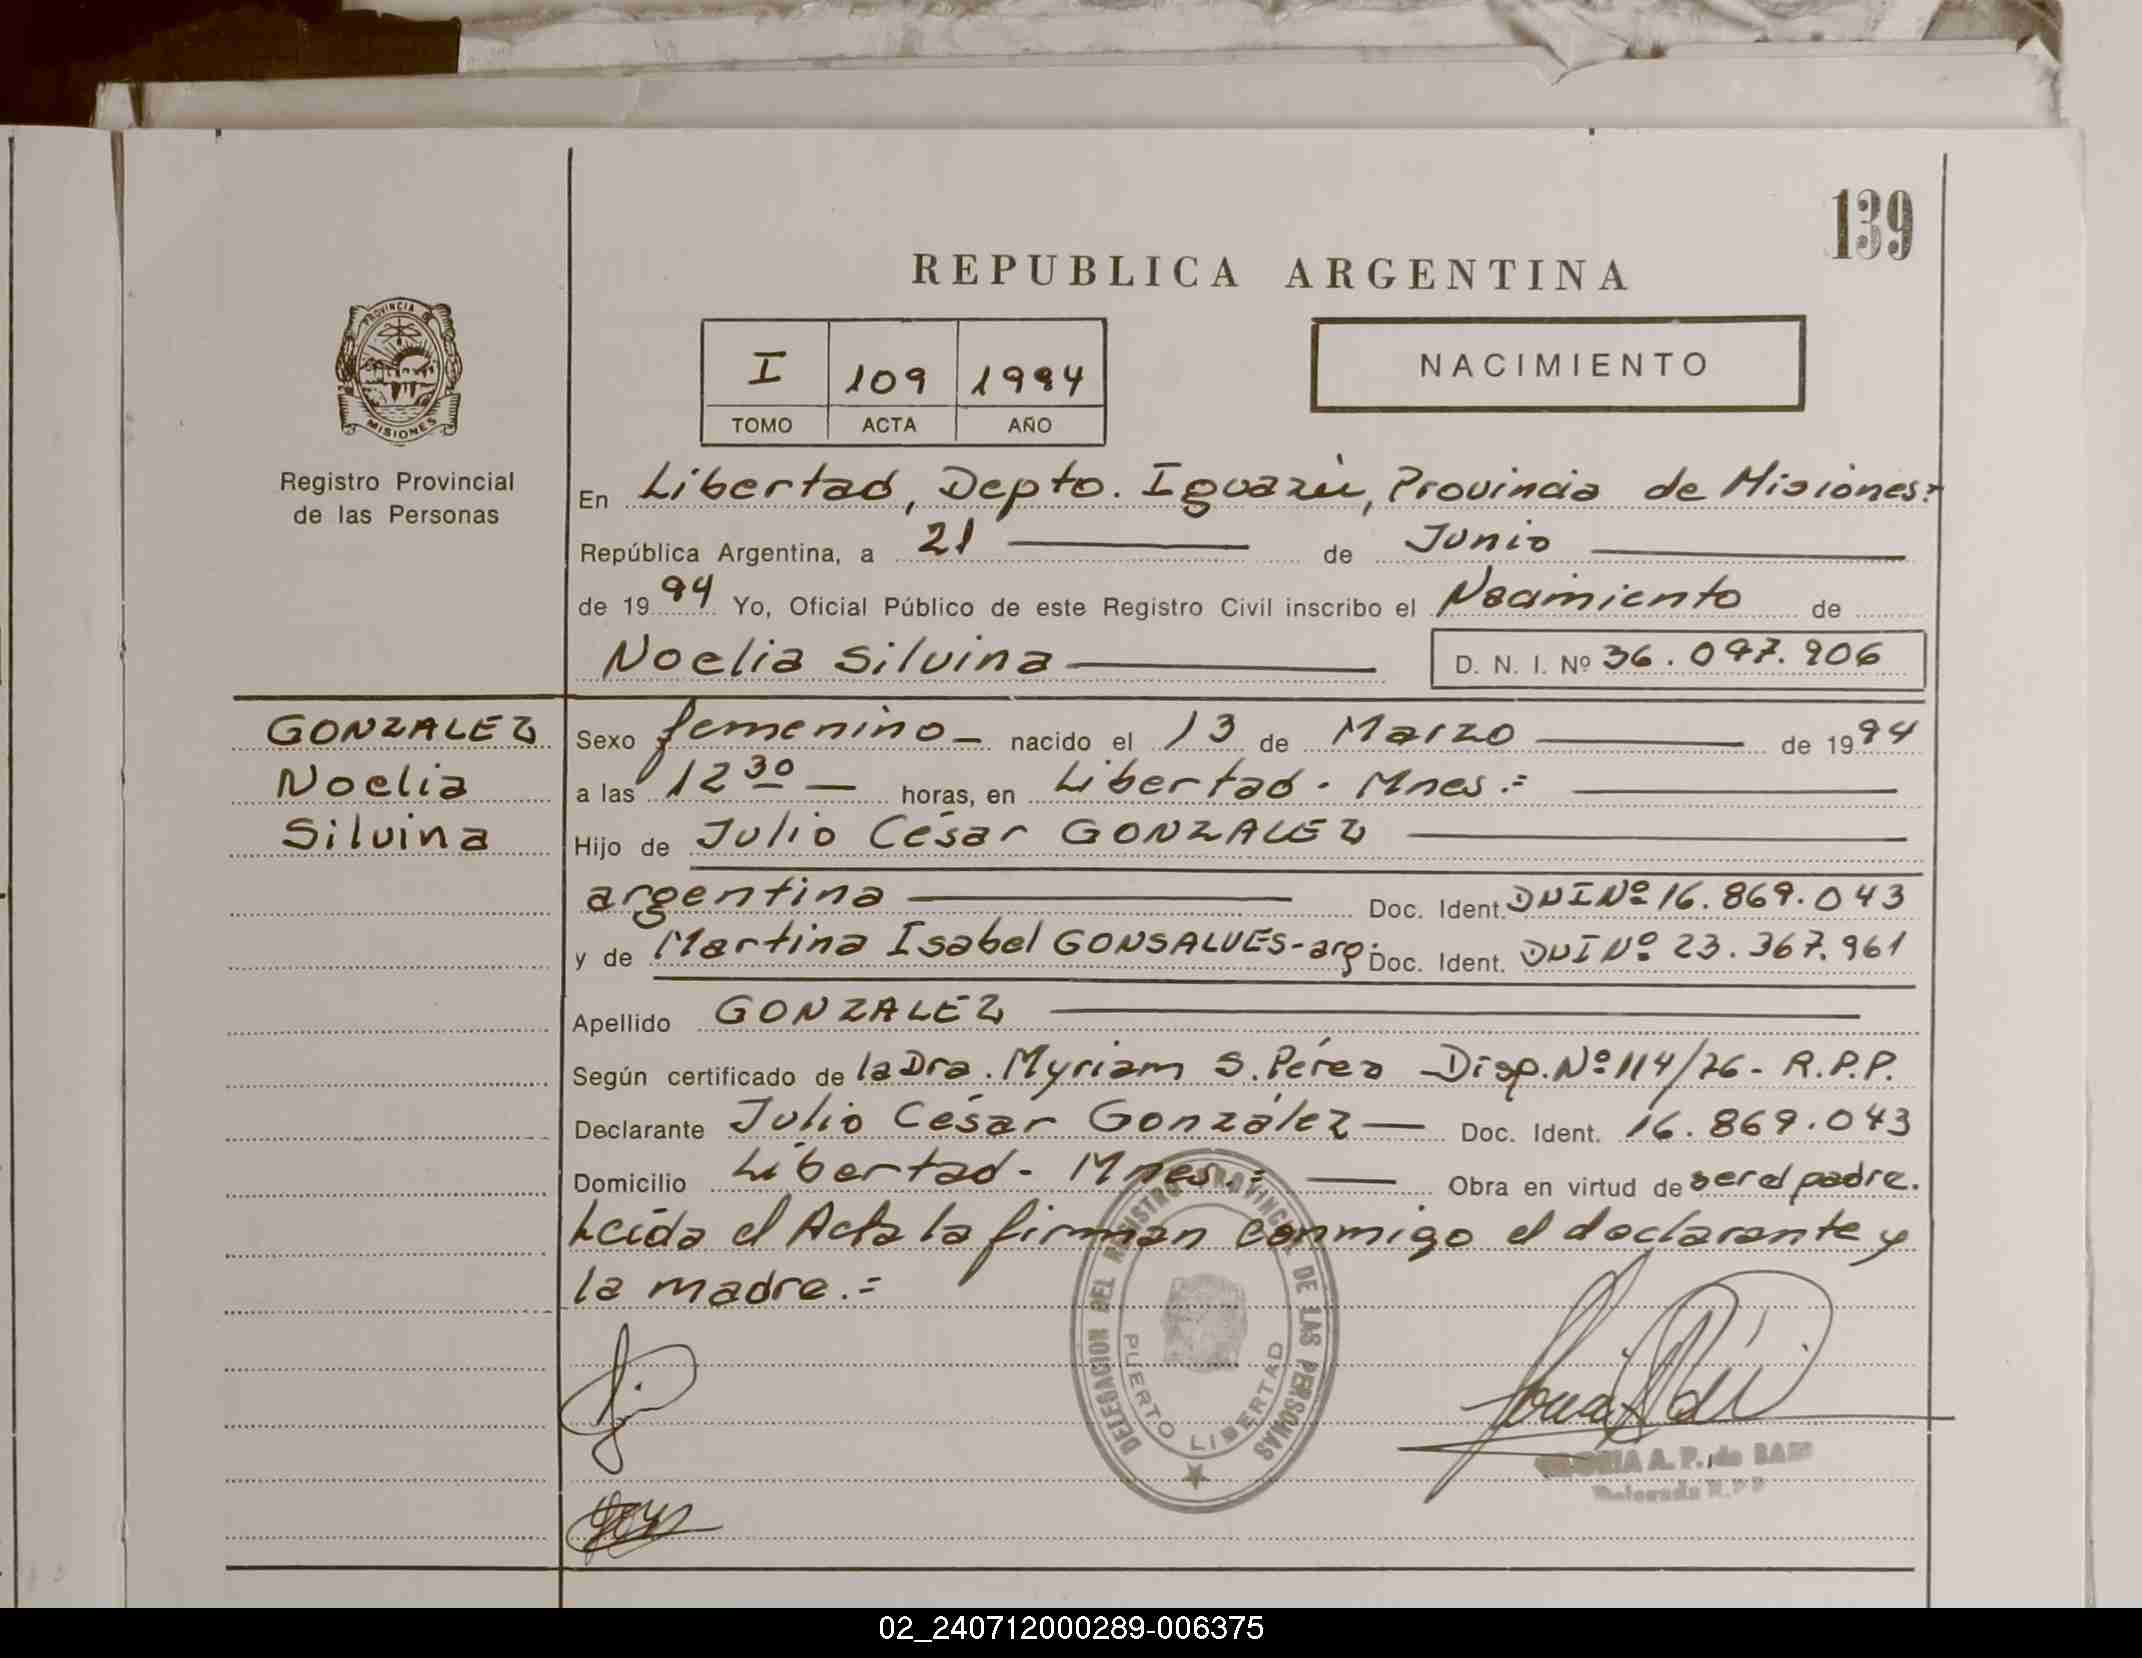 139
REPUBLICA ARGENTINA
PROVINCIA DE
MISIONES
Registro Provincial
de las Personas
I 109 1994
TOMO ACTA AÑO
NACIMIENTO
En Libertad, Depto. Iguazú, Provincia de Misiones.=
República Argentina, a 21 de Junio
de 1994 Yo, Oficial Público de este Registro Civil inscribo el Nacimiento de
Noelia Silvina D. N. I. Nº 36.097.906
GONZALEZ
Noelia
Silvina
Sexo femenino nacido el 13 de Marzo de 1994
a las 12 30 horas, en Libertad - Mnes.=
Hijo de Julio César GONZALEZ
argentina Doc. Ident. DNI Nº 16.869.043
y de Martina Isabel GONSALVES - arg. Doc. Ident. DNI Nº 23.367.961
Apellido GONZALEZ
Según certificado de la Dra. Myriam S. Pérez Disp. Nº 114/76 - R.P.P.
Declarante Julio César González Doc. Ident. 16.869.043
Domicilio Libertad - Mnes.= Obra en virtud de ser el padre.
Leída el Acta la firman conmigo el declarante y
la madre.=
DELEGACION DEL REGISTRO PROVINCIAL DE LAS PERSONAS
PUERTO LIBERTAD
A. P. de
Delegada R.P.P.
02_240712000289-006375